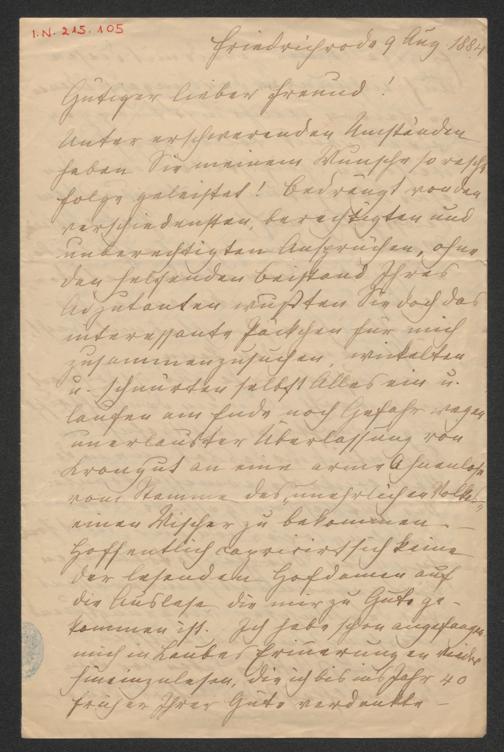 I.N. 215.105
Friedrichroda 9 Aug 1884
Gütiger lieber Freund!
Unter erschwerenden Umständen
haben Sie meinem Wunsche so rasch
folge geleistet! Bedrängt von den
verschiedensten, berechtigten und
unberechtigten Ansprüchen, ohne
den helfenden Beistand Ihres
Adjutanten wußten Sie doch das
interessante Päckchen für mich
zusammenzusuchen, wickelten
u. schnürten selbst Alles ein u.
laufen am Ende noch Gefahr wegen
unerlaubter Überlassung von
Krongut an eine arme Ahnenlose
vom Stamme des „unehrlichen Volkes“
einen Wischer zu bekommen –
Hoffentlich capricirt sich keine
der lesenden Hofdamen auf
die Auslese die mir zu Gute ge-
kommen ist. Ich habe schon angefangen
mich in Laubes Erinnerungen wieder
hineinzulesen, die ich bis ins Jahr 40
früher Ihrer Güte verdankte –